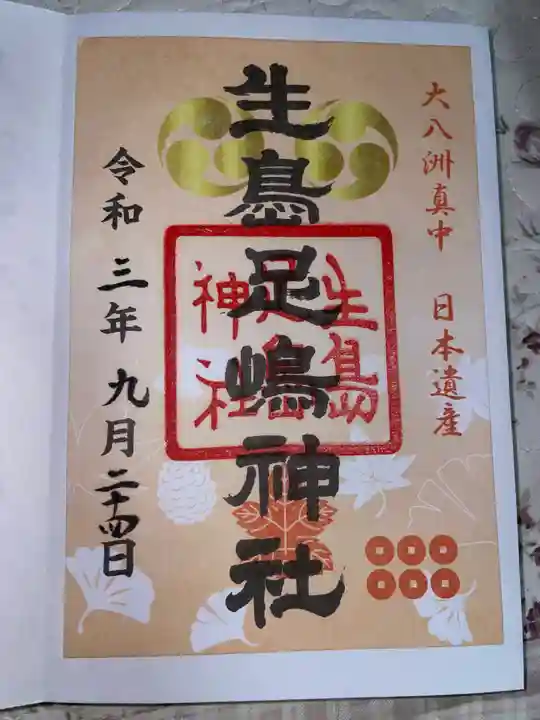 大八洲真中 日本遺産
生島足嶋神社
生島
足島
神社
令和三年九月二十四日